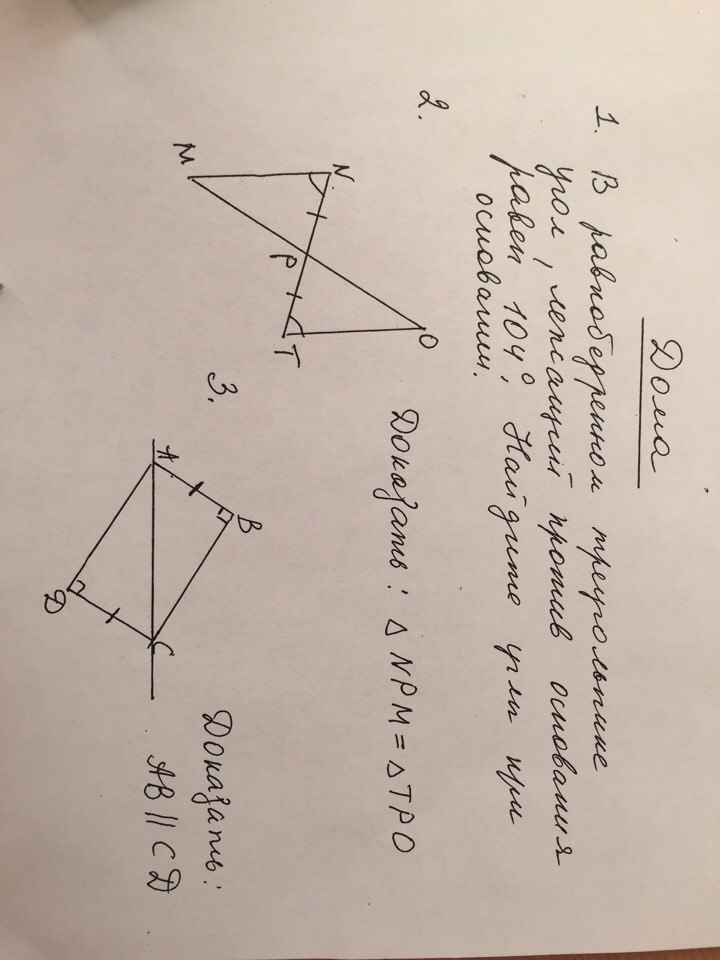 Дома
1. В равнобедренном треугольнике
угол, лежащий против основания
равен 104°, Найдите углы при
основании.
2.
M
N
P
T
O
Доказать: △ NPM = △ TPO
3.
A
B
C
D
Доказать:
AB || CD